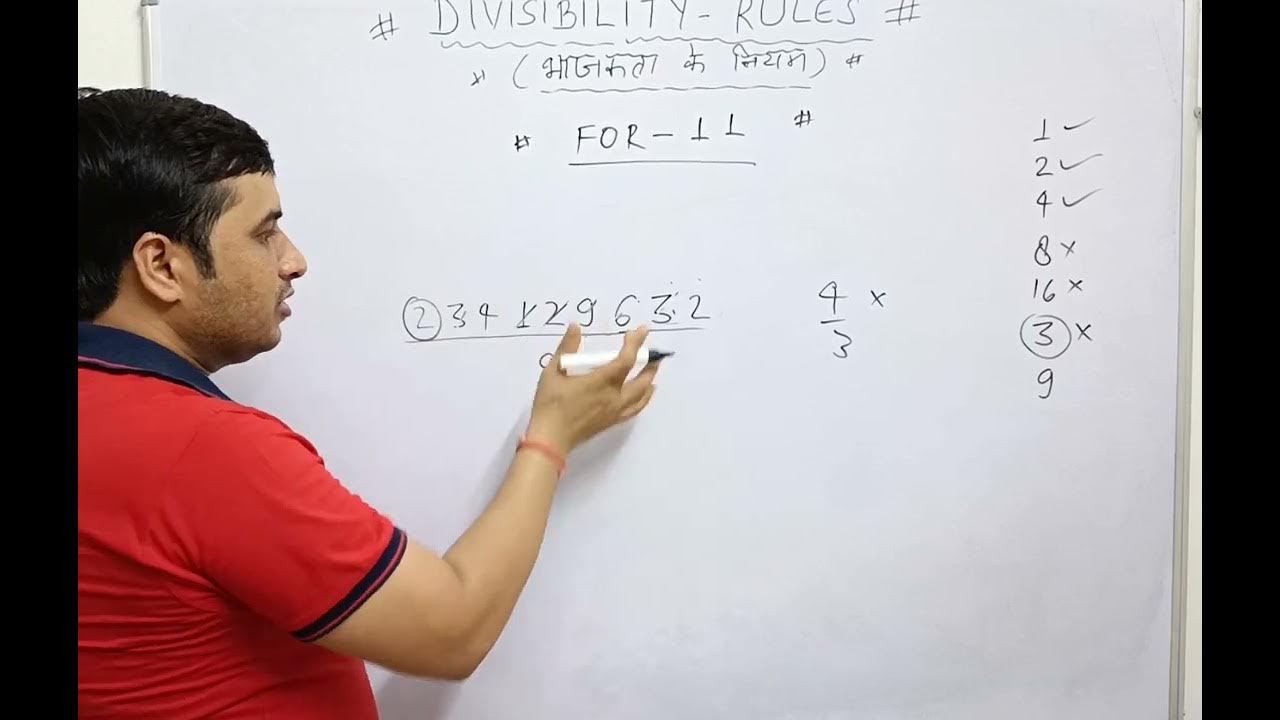 # DIVISIBILITY - RULES #
* (भाजकता के नियम) *
* FOR - 11 #
2 3 4 1 2 9 6 3 2
4/3 ×
1 ✓
2 ✓
4 ✓
8 ×
16 ×
3 ×
9